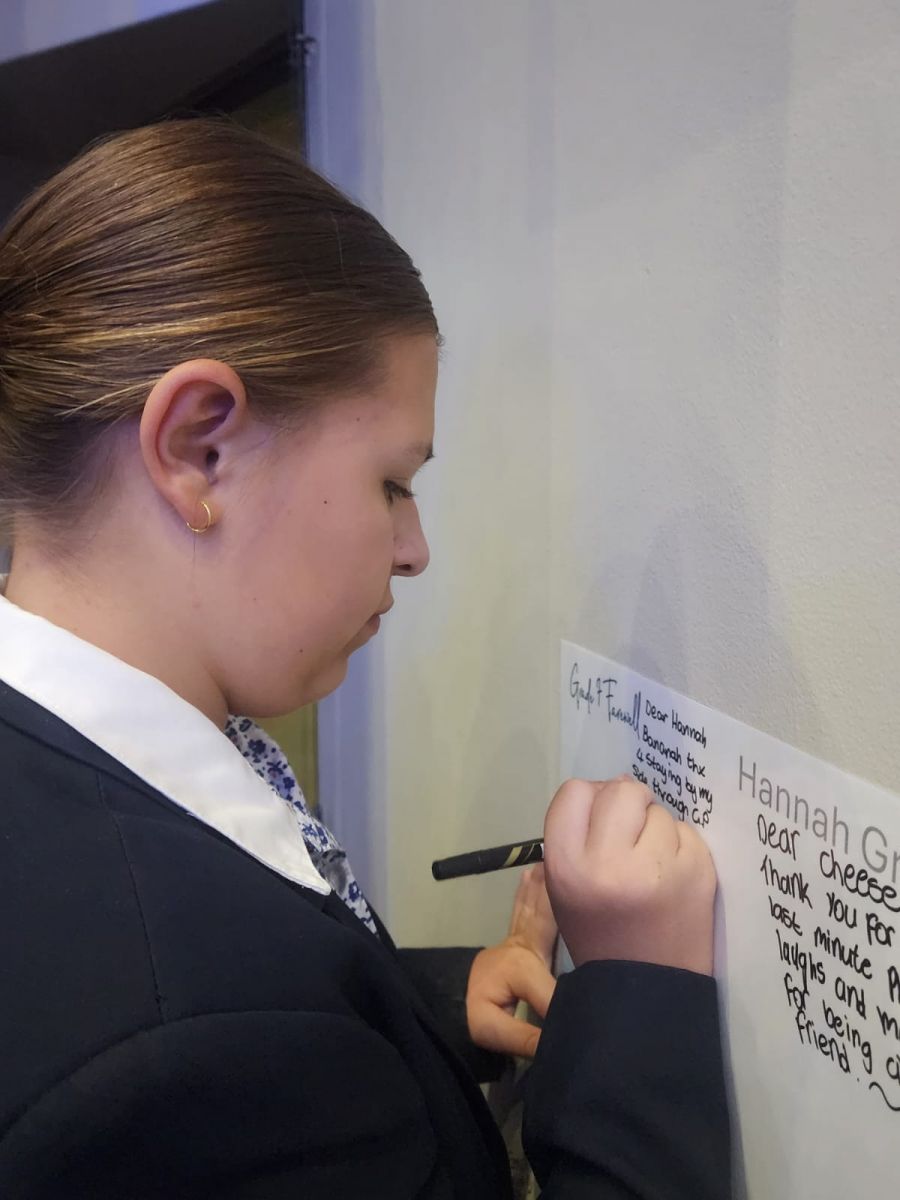 Grade 7 Farewell
Dear Hannah
Bananah thx
4 staying by my
side through G.P
Hannah
Dear cheese
thank you for
last minute
laughs and
for being a
friend.